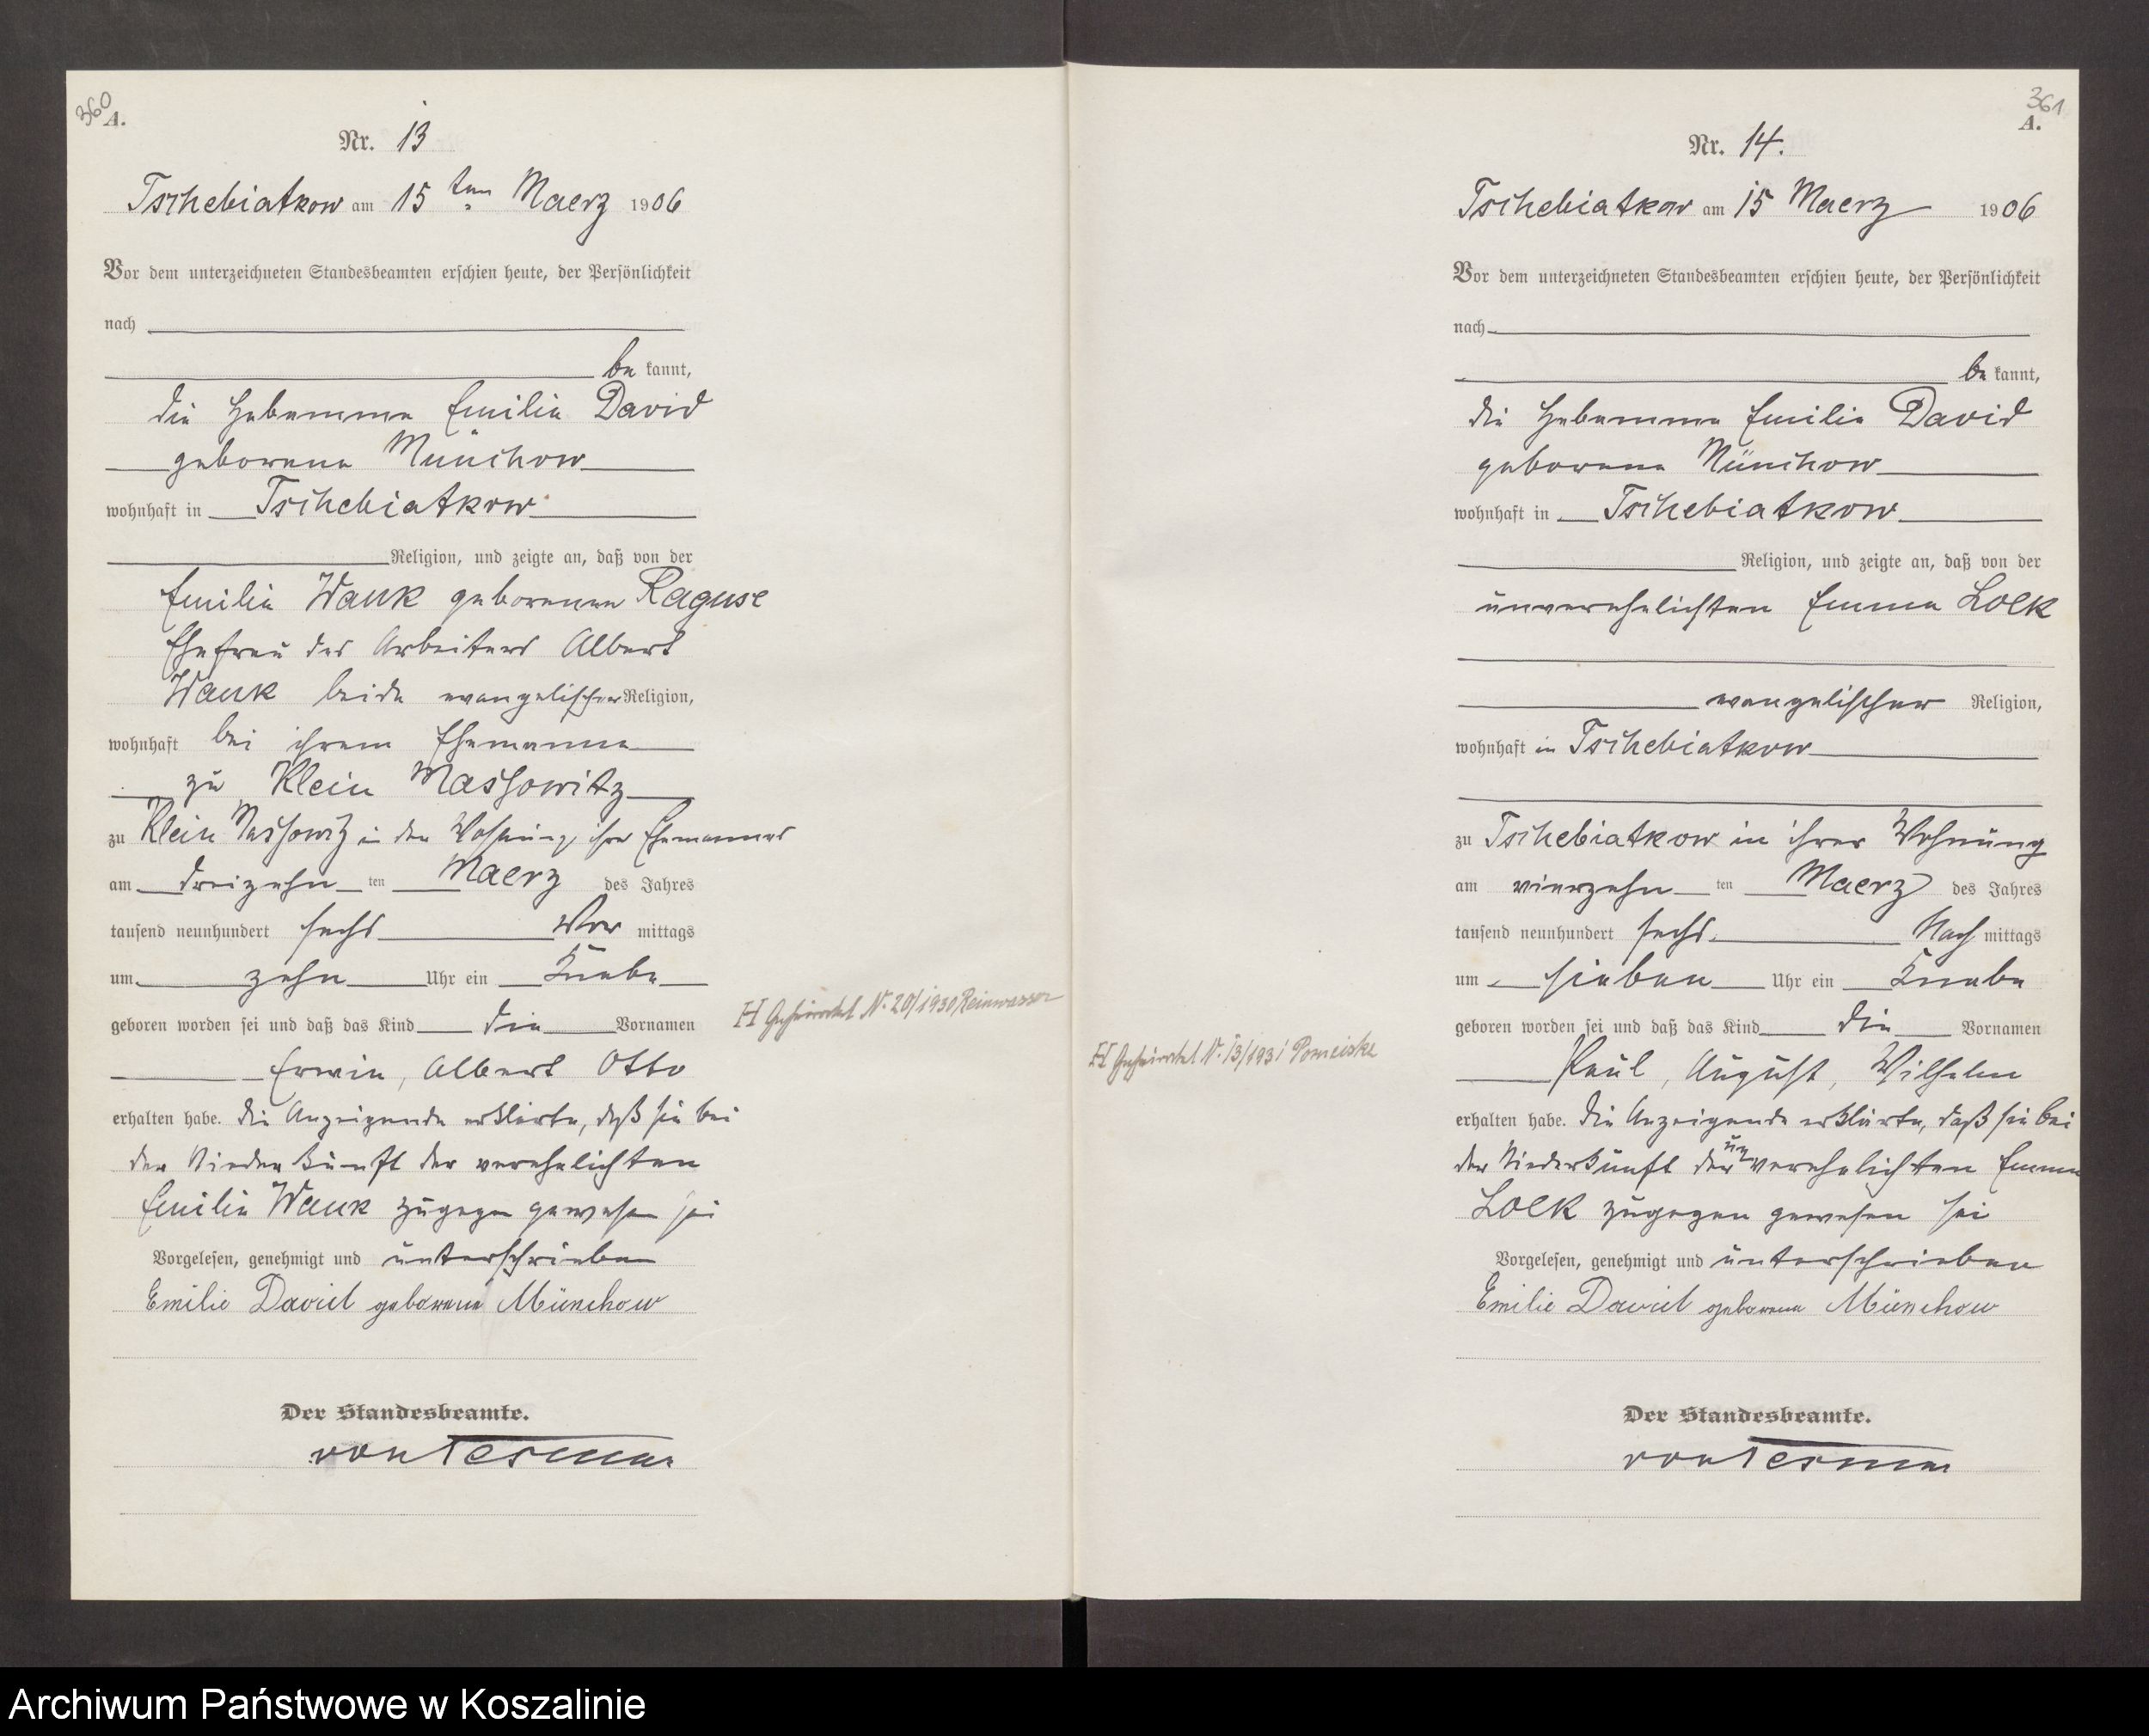 360
A.
Nr. 13
Tschebiatkow am 15ten Maerz 1906
Vor dem unterzeichneten Standesbeamten erschien heute, der Persönlichkeit
nach
be kannt,
die Hebamme Emilie David
geborene Münchow
wohnhaft in Tschebiatkow
Religion, und zeigte an, daß von der
Emilie Wauk geborenen Raguse
Ehefrau des Arbeiters Albert
Wauk beide evangelischer Religion,
wohnhaft bei ihrem Ehemanne
zu Klein Massowitz
zu Klein Massowitz in der Wohnung ihres Ehemannes
am dreizehn ten Maerz des Jahres
tausend neunhundert sechs Vor mittags
um zehn Uhr ein Knabe
geboren worden sei und daß das Kind die Vornamen
Erwin, Albert Otto
erhalten habe. Die Anzeigende erklärte, daß sie bei
der Niederkunft der verehelichten
Emilie Wauk zugegen gewesen sei
Vorgelesen, genehmigt und unterschrieben
Emilie David geborene Münchow
Der Standesbeamte.
von Tesmar
H Geheiratet N. 20/1930 Reinwasser
361
A.
Nr. 14.
Tschebiatkow am 15 Maerz 1906
Vor dem unterzeichneten Standesbeamten erschien heute, der Persönlichkeit
nach
be kannt,
die Hebamme Emilie David
geborene Münchow
wohnhaft in Tschebiatkow
Religion, und zeigte an, daß von der
unverehelichten Emma Lolk
evangelischer Religion,
wohnhaft in Tschebiatkow
zu Tschebiatkow in ihrer Wohnung
am vierzehn ten Maerz des Jahres
tausend neunhundert sechs. Nach mittags
um sieben Uhr ein Knabe
geboren worden sei und daß das Kind die Vornamen
Paul, August, Wilhelm
erhalten habe. Die Anzeigende erklärte, daß sie bei
der Niederkunft der unverehelichten Emma
Lolk zugegen gewesen sei
Vorgelesen, genehmigt und unterschrieben
Emilie David geborene Münchow
Der Standesbeamte.
von Tesmar
H Geheiratet N. 13/1931 Pomeiske
Archiwum Państwowe w Koszalinie